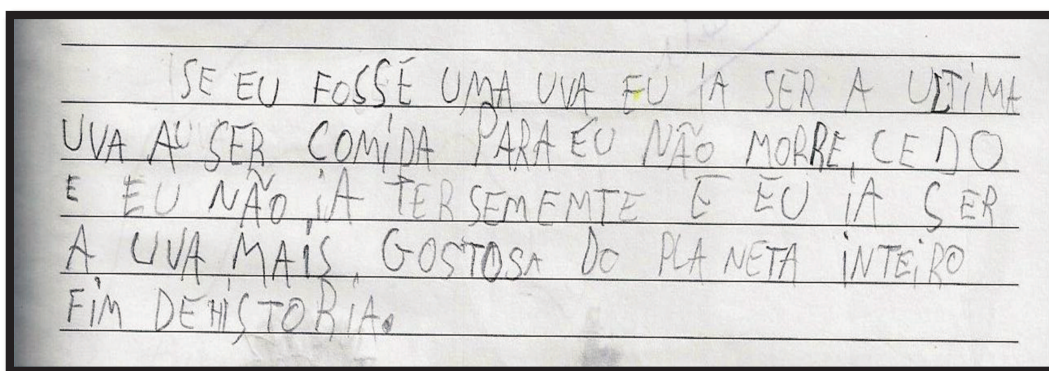 SE EU FOSSE UMA UVA EU IA SER A ULTIMA
UVA AU SER COMIDA PARA EU NÃO MORRE, CEDO
E EU NÃO IA TER SEMEMTE E EU IA SER
A UVA MAIS GOSTOSA DO PLANETA INTEIRO
FIM DE HISTORIA.